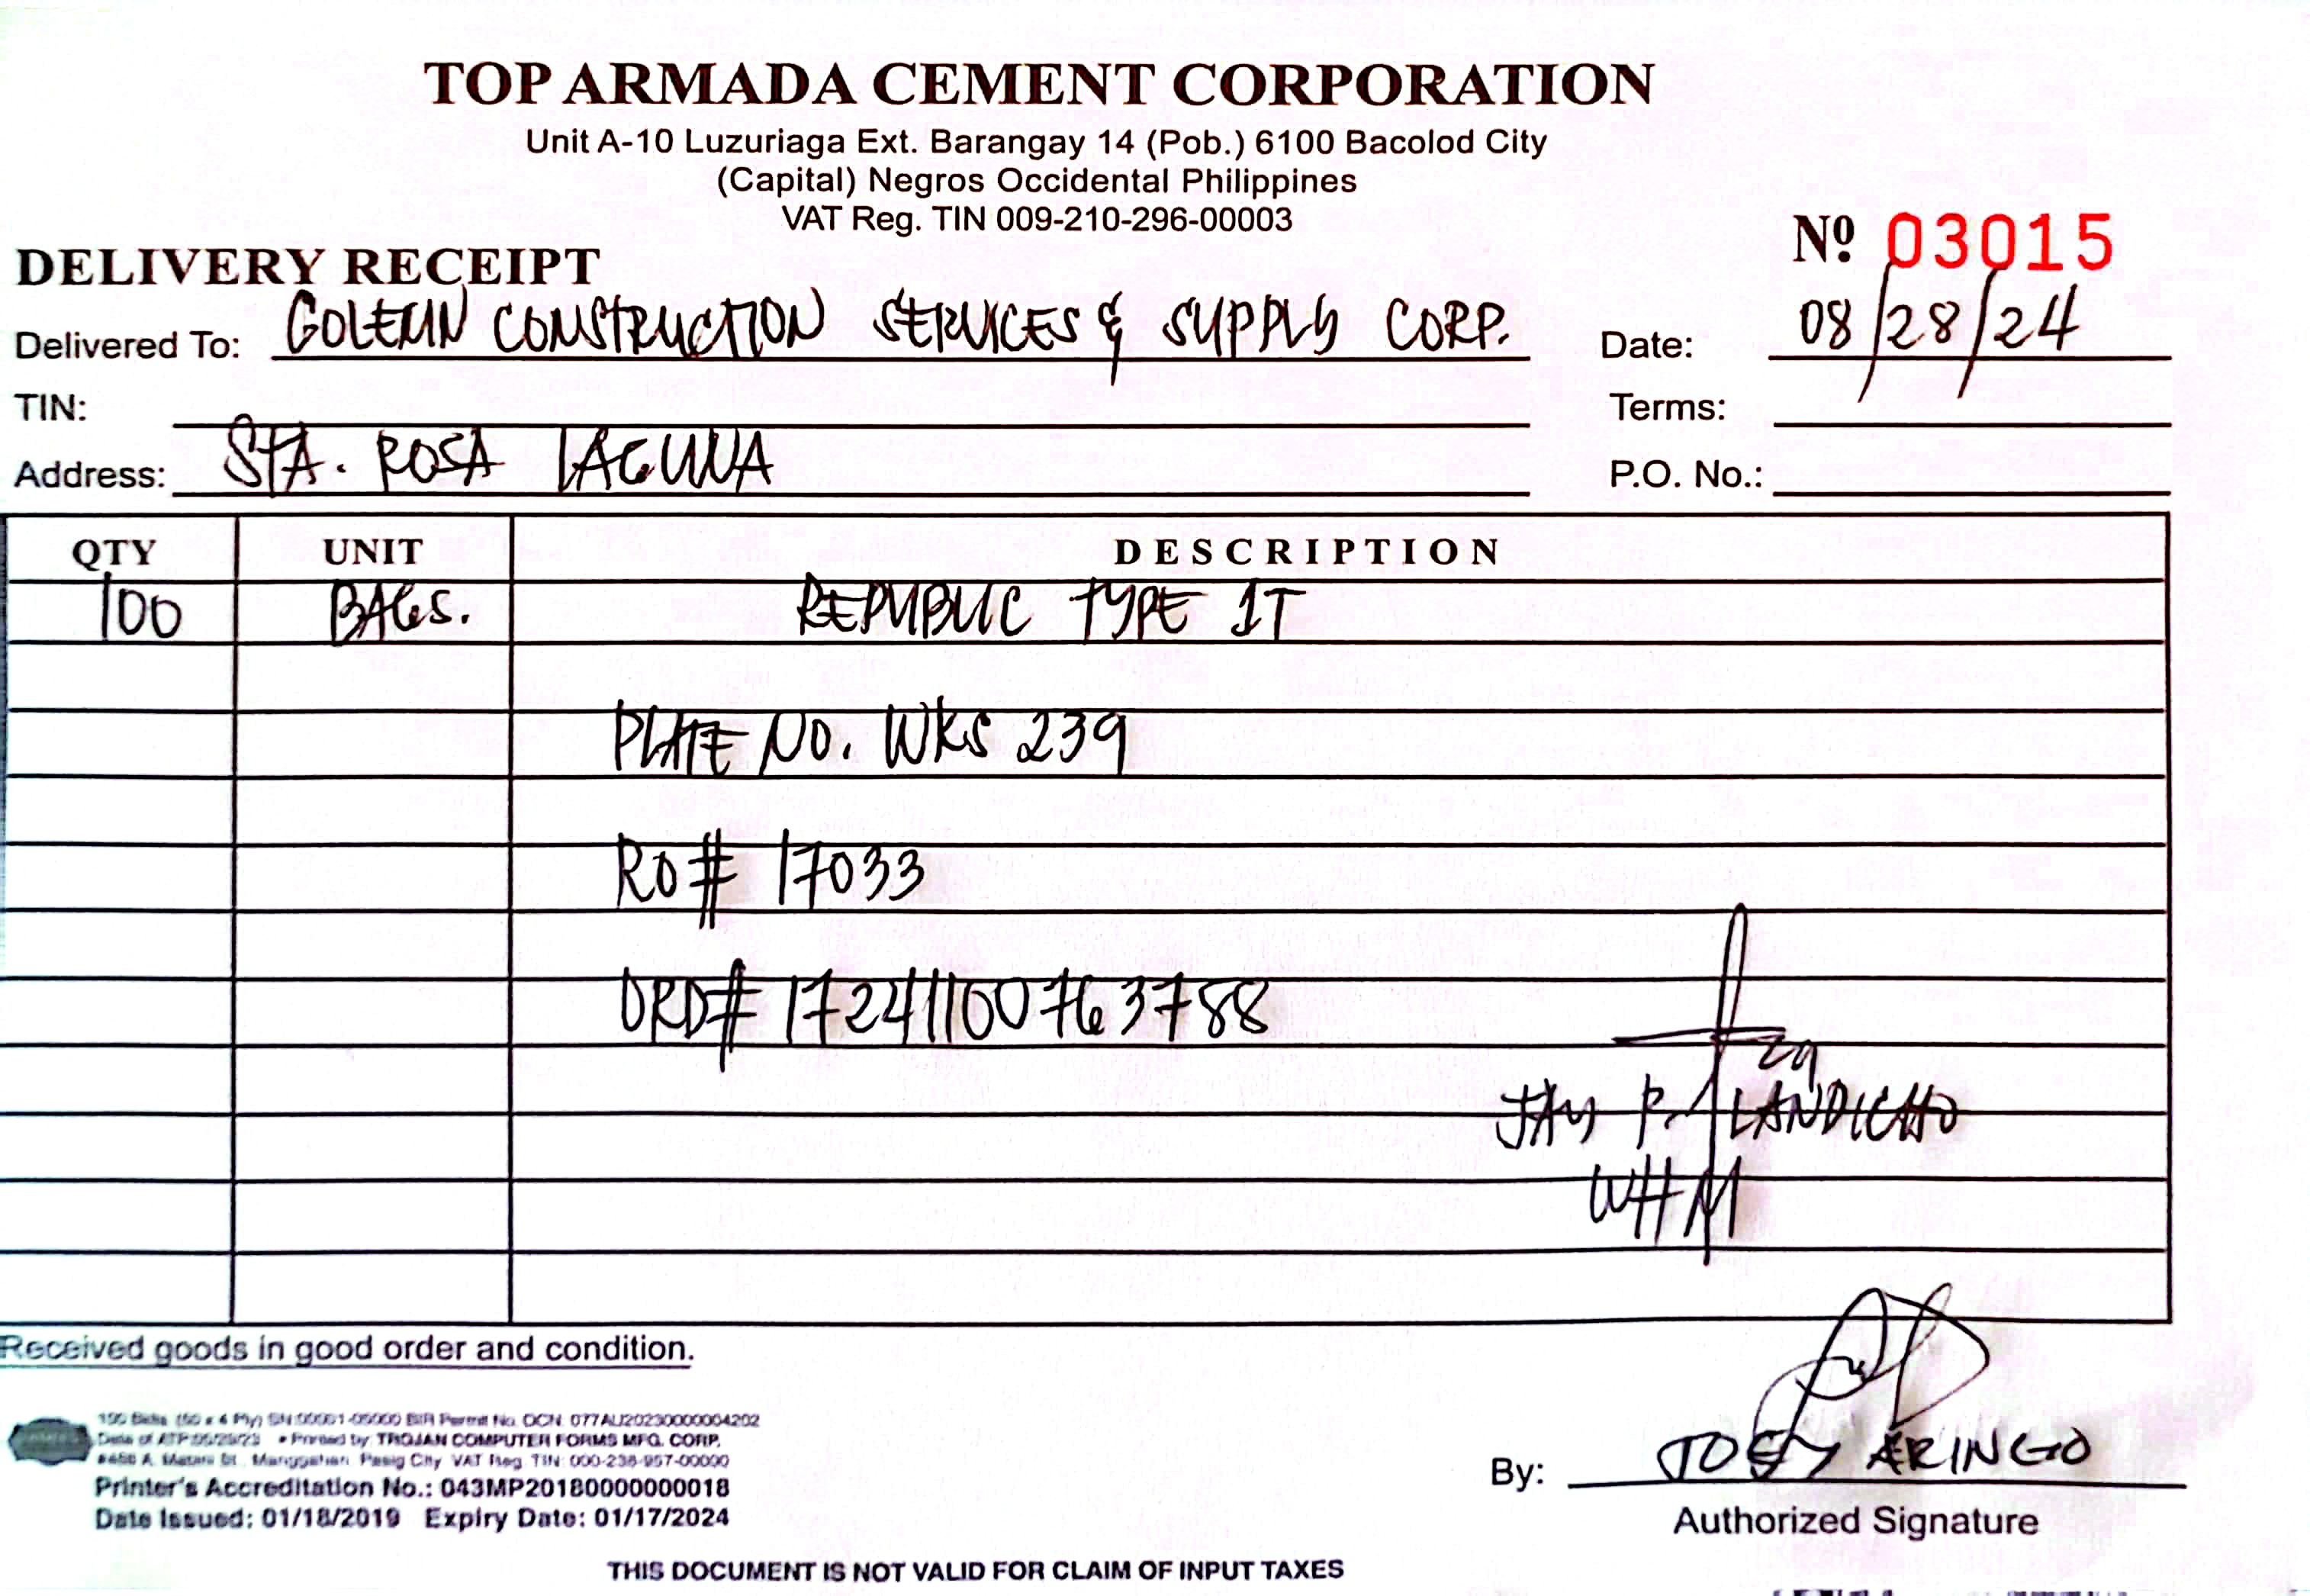 TOP ARMADA CEMENT CORPORATION
Unit A-10 Luzuriaga Ext. Barangay 14 (Pob.) 6100 Bacolod City
(Capital) Negros Occidental Philippines
VAT Reg. TIN 009-210-296-00003
Nº 03015
DELIVERY RECEIPT
Delivered To: GOLEMN CONSTRUCTION SERVICES & SUPPLY CORP.
Date: 08/28/24
TIN:
Terms:
Address: STA. ROSA LAGUNA
P.O. No.:
QTY UNIT DESCRIPTION
100 BAGS. REPUBLIC TYPE 1T
PLATE NO. WKS 239
RO# 17033
ORD# 1724110076 3788
JAY P. LANDICHO
WHM
Received goods in good order and condition.
100 Bklts. (50 x 4 Ply) SN:00001-05000 BIR Permit No. OCN: 077AU20230000004202
Date of ATP: • Printed by: TROJAN COMPUTER FORMS MFG. CORP.
Manggahan Pasig City VAT Reg. TIN: 000-238-957-00000
Printer's Accreditation No.: 043MP20180000000018
Date Issued: 01/18/2019 Expiry Date: 01/17/2024
By: JOEY ARINGO
Authorized Signature
THIS DOCUMENT IS NOT VALID FOR CLAIM OF INPUT TAXES